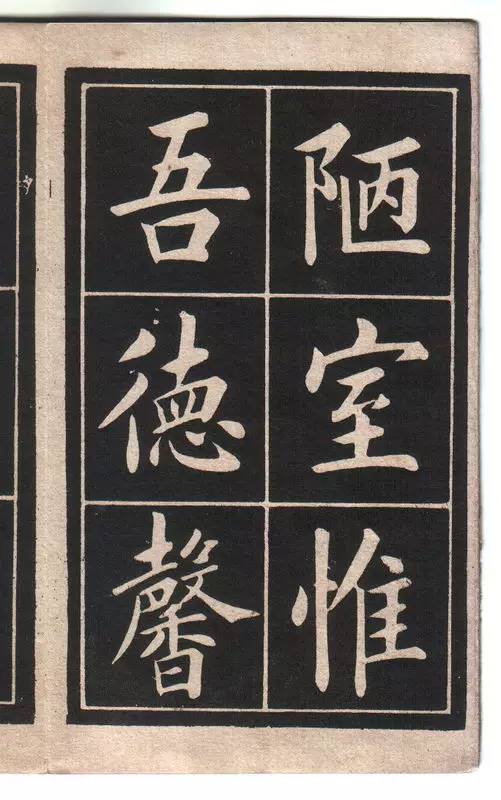 陋室惟
吾德馨